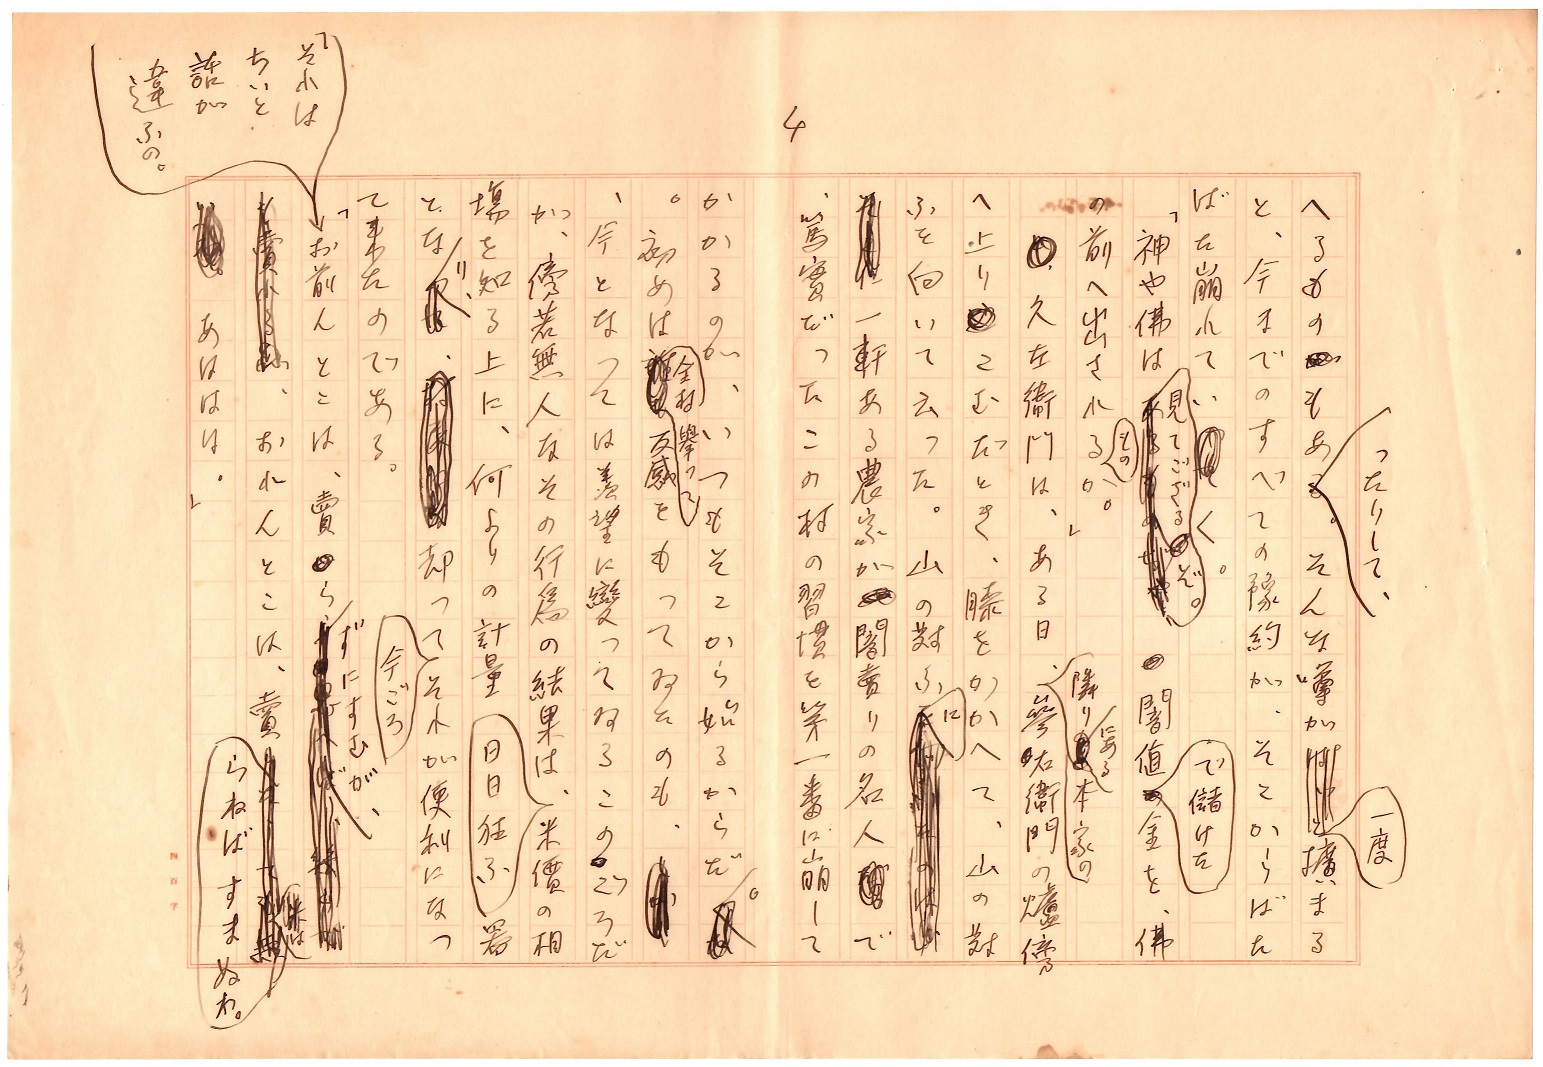 4
へるものもあつたりして、そんな噂が一度擴まる
と、今までのすべての豫約が、そこからばた
ばた崩れていく。
「神や佛は見てござるぞ。闇値で儲けた金を、佛
の前へ出されるものか。」
久左衛門は、ある日、隣りにある本家の參右衛門の爐傍
へ上りこむだとき、膝をかかへて、山の對
ふを向いて云つた。山の對ふに
一軒ある農家が闇賣りの名人で
、篤實だつたこの村の習慣を第一番に崩して
かかるのが、いつもそこから始るからだ。
。初めは全村擧つて反感をもつてゐたのも、
、今となつては羨望に變つてゐるこのごろだ
が、傍若無人なその行爲の結果は、米價の相
場を知る上に、何よりの計量日日狂ふ器
となり、却つて今ごろそれが便利になつ
て來たのである。
「それはちいと話が違ふの。
「お前んとこは、賣らずにすむが、
おれんとこは、賣らねばすまぬわ。
あははは。」